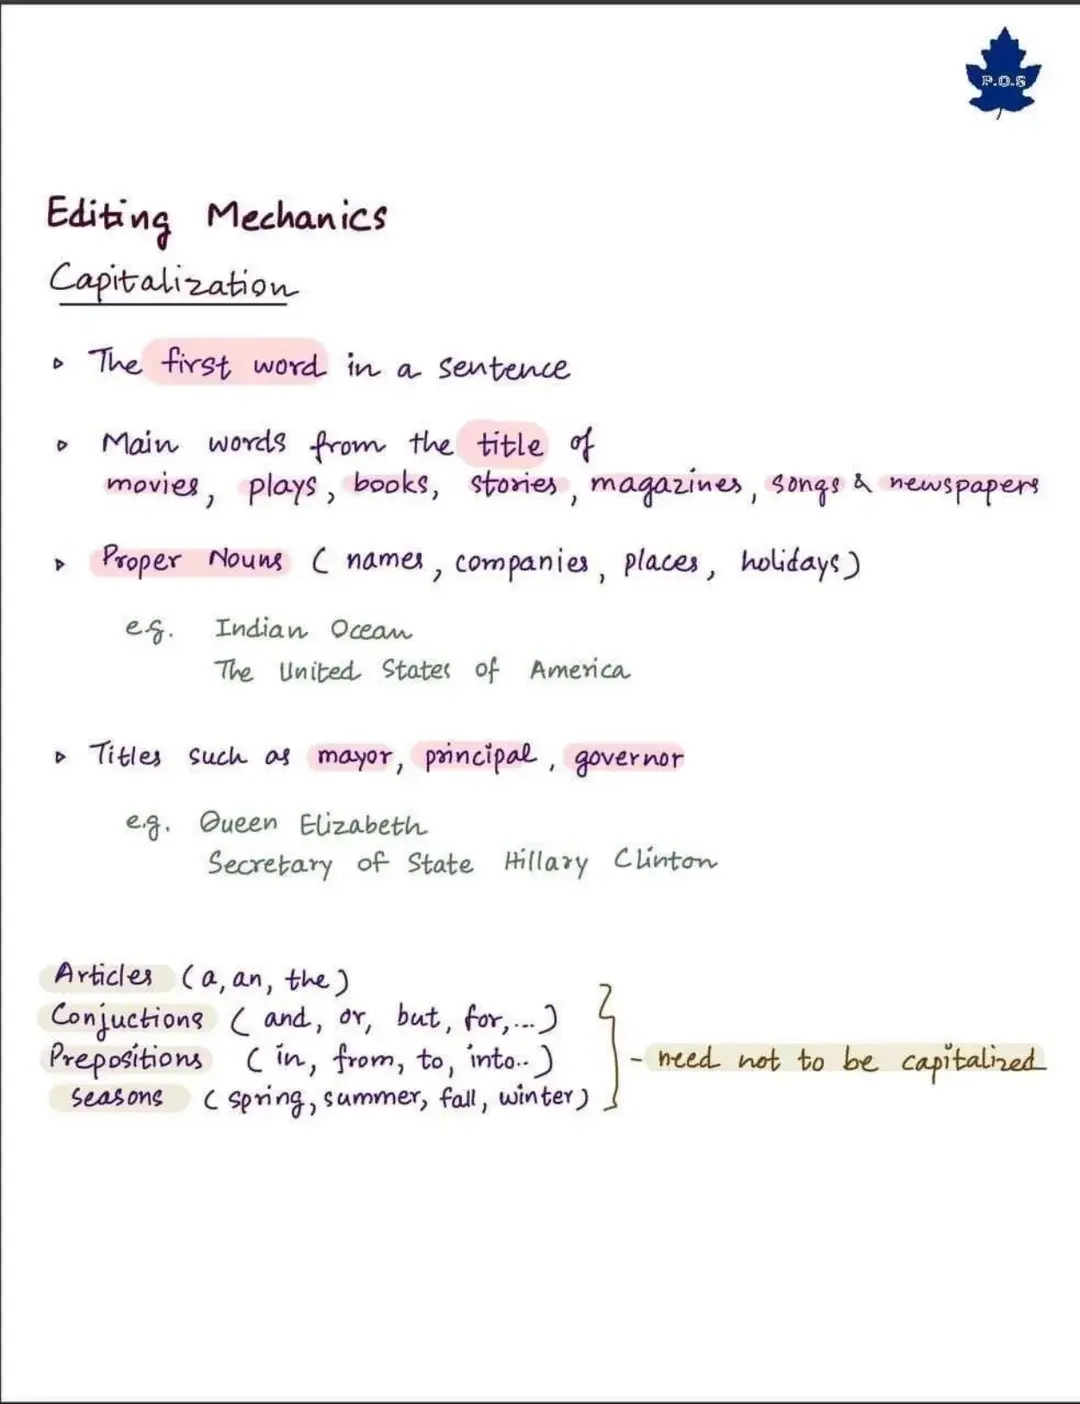 P.O.S
Editing Mechanics
Capitalization
▹ The first word in a sentence
▹ Main words from the title of
movies, plays, books, stories, magazines, songs & newspapers
▹ Proper Nouns (names, companies, places, holidays)
e.g. Indian Ocean
The United States of America
▹ Titles such as mayor, principal, governor
e.g. Queen Elizabeth
Secretary of State Hillary Clinton
Articles (a, an, the)
Conjuctions (and, or, but, for,...)
Prepositions (in, from, to, into..)
- need not to be capitalized
Seasons (spring, summer, fall, winter)